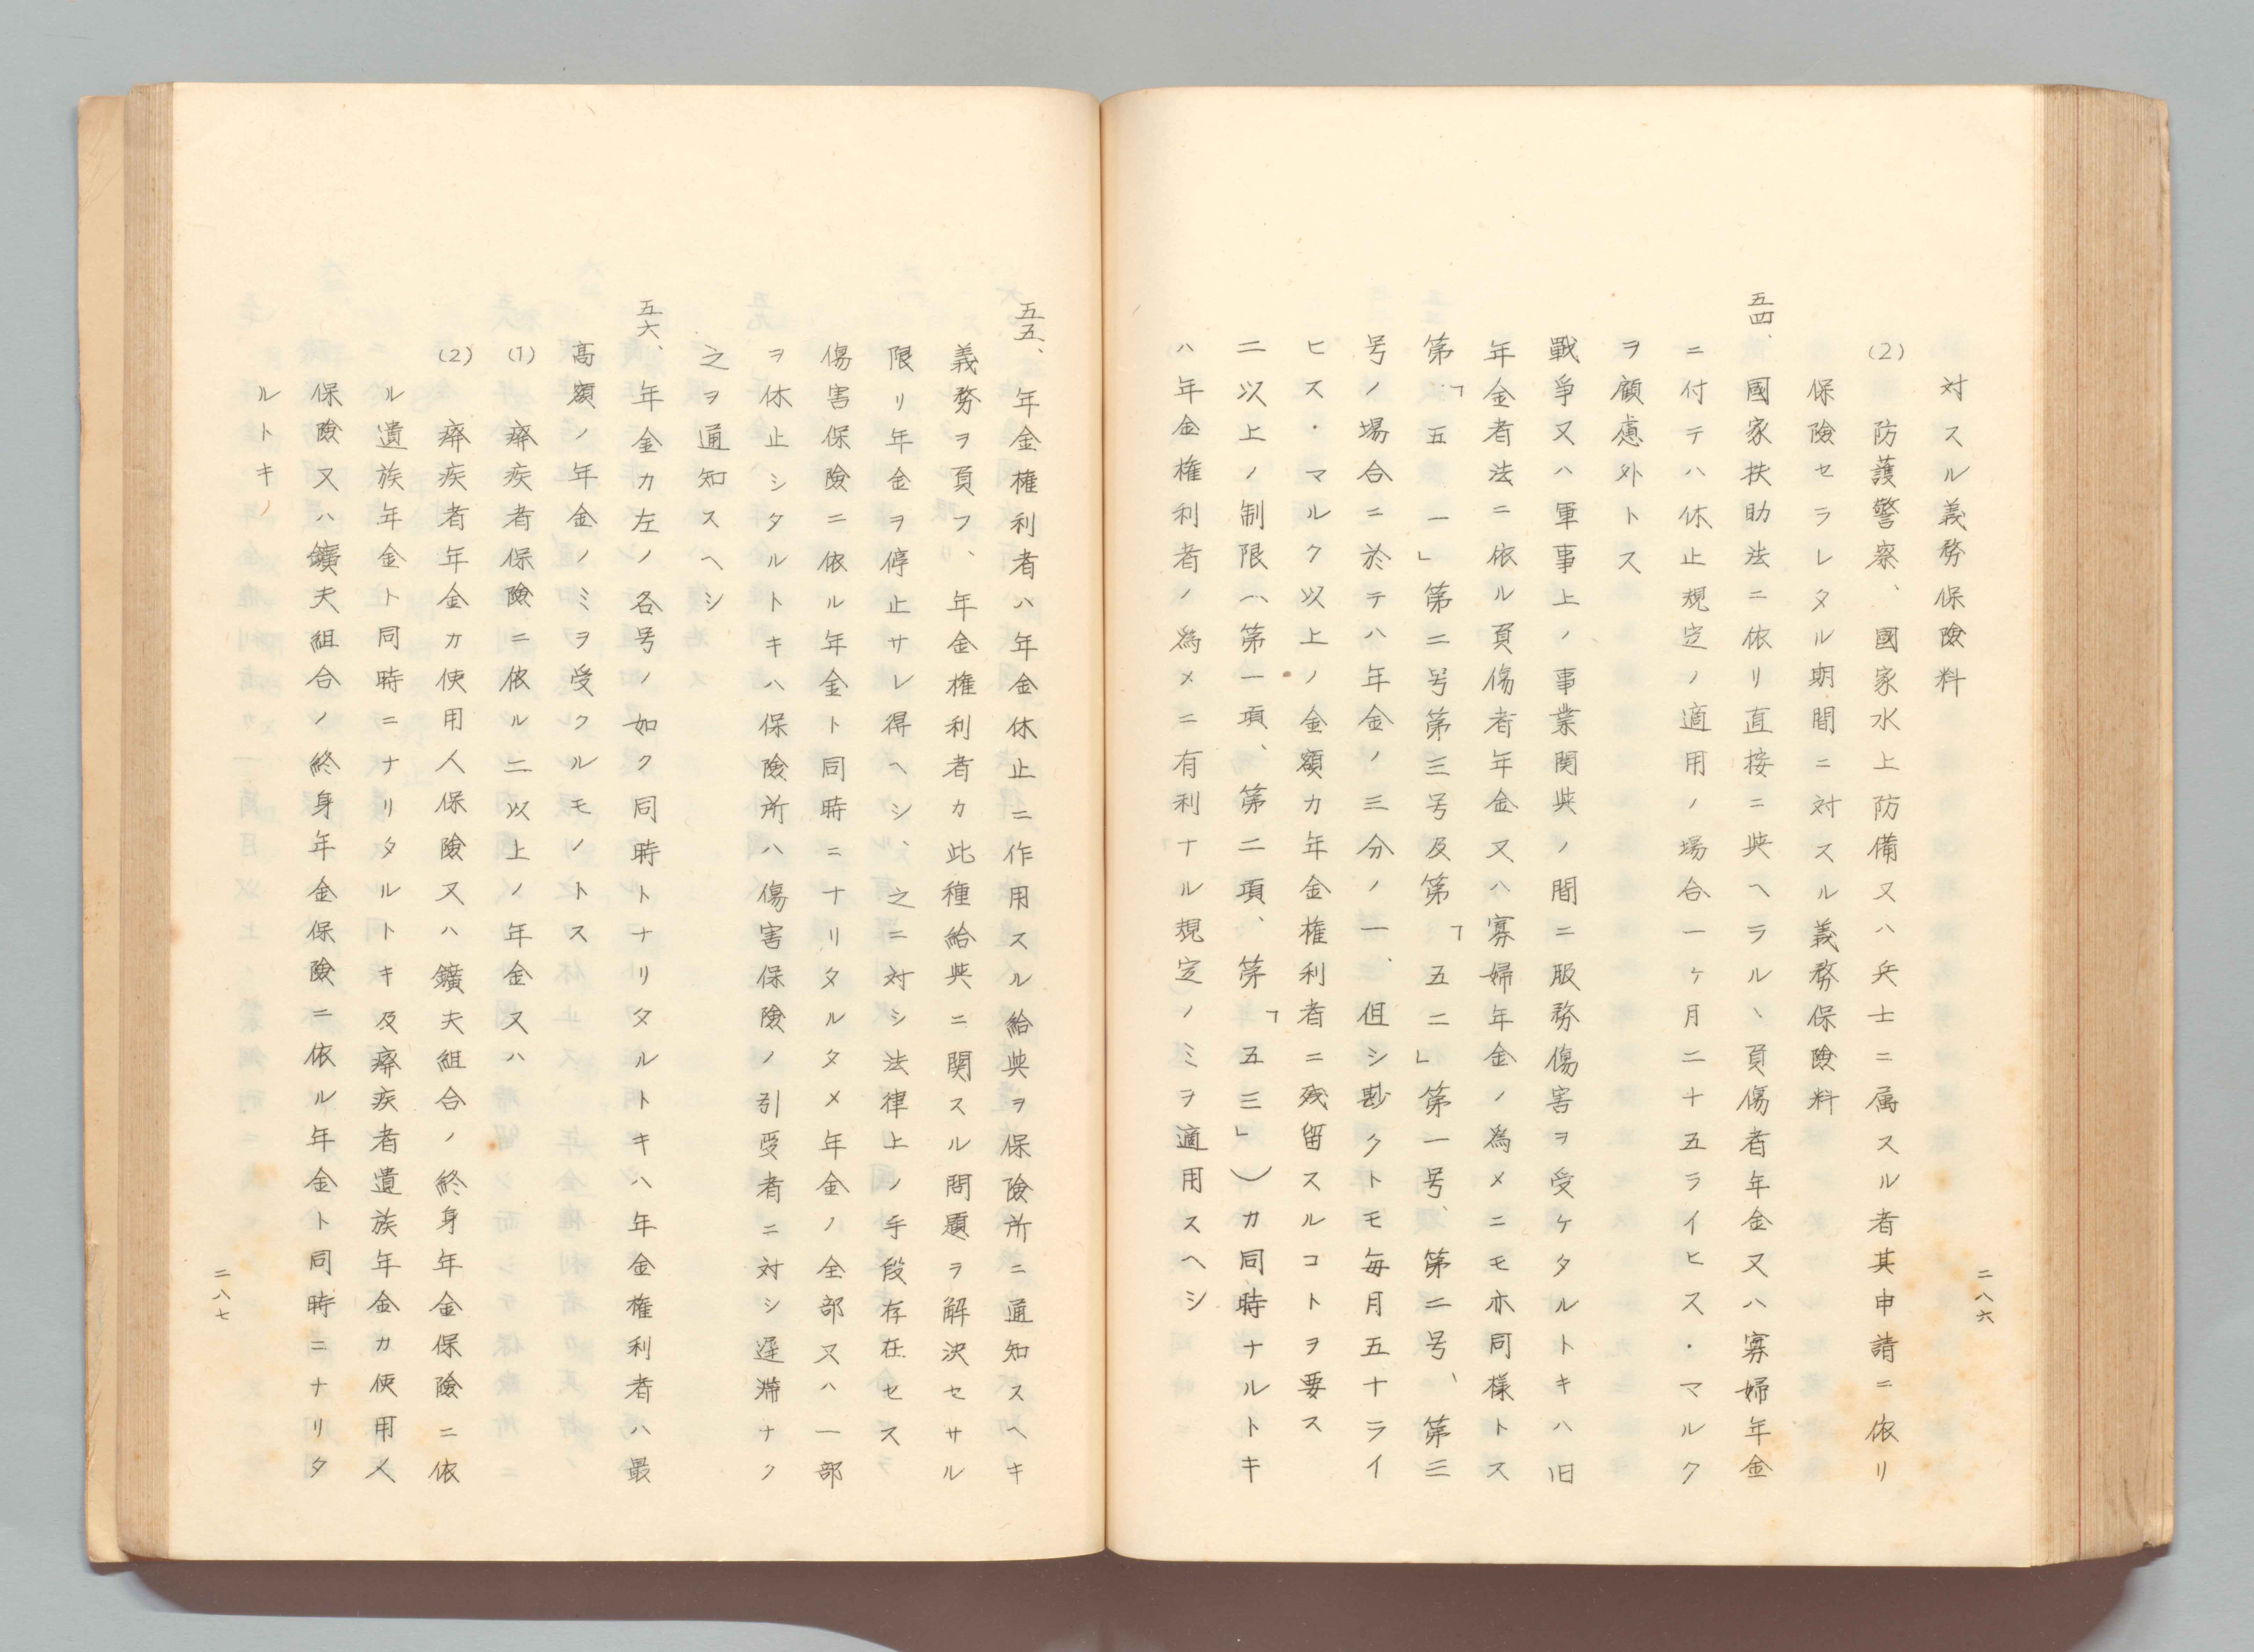 対スル義務保險料
(2) 防護警察、國家水上防備又ハ兵士ニ属スル者其申請ニ依リ
保險セラレタル期間ニ対スル義務保險料
五四、國家扶助法ニ依リ直接ニ與ヘラル、負傷者年金又ハ寡婦年金
ニ付テハ休止規定ノ適用ノ場合一ヶ月二十五ライヒス・マルク
ヲ顧慮外トス
戰爭又ハ軍事上ノ事業関與ノ間ニ服務傷害ヲ受ケタルトキハ旧
年金者法ニ依ル負傷者年金又ハ寡婦年金ノ為メニモ亦同樣トス
第「五一」第二号第三号及第「五二」第一号、第二号、第三
号ノ場合ニ於テハ年金ノ三分ノ一、但シ尠クトモ毎月五十ライ
ヒス・マルク以上ノ金額カ年金権利者ニ残留スルコトヲ要ス
二以上ノ制限(第一項、第二項、第「五三」)カ同時ナルトキ
ハ年金権利者ノ為メニ有利ナル規定ノミヲ適用スヘシ
二八六
五五、年金権利者ハ年金休止ニ作用スル給與ヲ保險所ニ通知スヘキ
義務ヲ負フ、年金権利者カ此種給與ニ関スル問題ヲ解決セサル
限リ年金ヲ停止サレ得ヘシ、之ニ対シ法律上ノ手段存在セス
傷害保險ニ依ル年金ト同時ニナリタルタメ年金ノ全部又ハ一部
ヲ休止シタルトキハ保險所ハ傷害保險ノ引受者ニ対シ遅滞ナク
之ヲ通知スヘシ
五六、年金カ左ノ各号ノ如ク同時トナリタルトキハ年金権利者ハ最
高額ノ年金ノミヲ受クルモノトス
(1) 癈疾者保險ニ依ル二以上ノ年金又ハ
(2) 癈疾者年金カ使用人保險又ハ鑛夫組合ノ終身年金保險ニ依
ル遺族年金ト同時ニナリタルトキ及癈疾者遺族年金カ使用人
保險又ハ鑛夫組合ノ終身年金保險ニ依ル年金ト同時ニナリタ
ルトキ
二八七